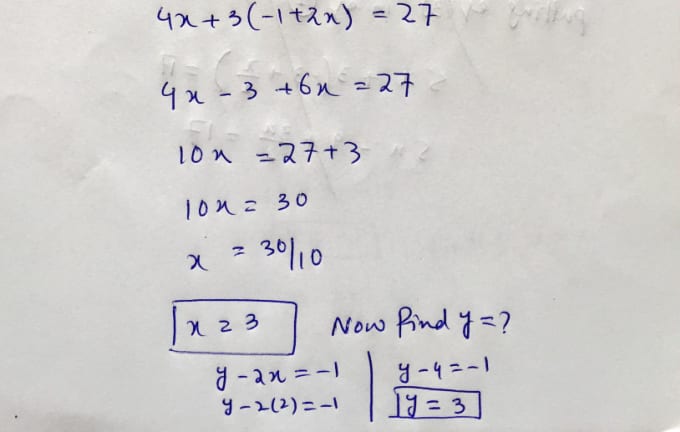 4x+3(-1+2x) = 27
4x - 3 + 6x = 27
10x = 27+3
10x = 30
x = 30/10
x = 3
Now find y=?
y - 2x = -1
y - 2(2) = -1
y - 4 = -1
y = 3